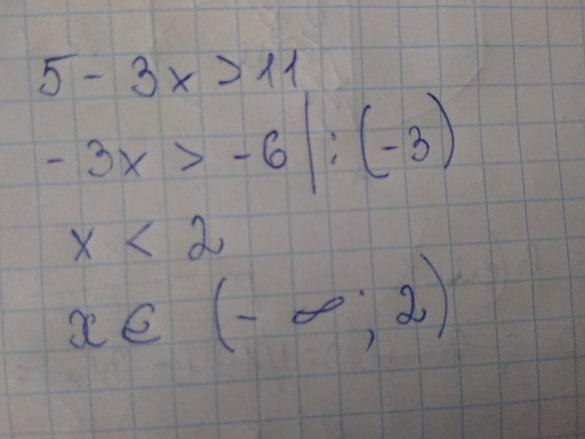 5 - 3x > 11
- 3x > -6 | : (-3)
x < 2
x ∈ (- ∞ ; 2)